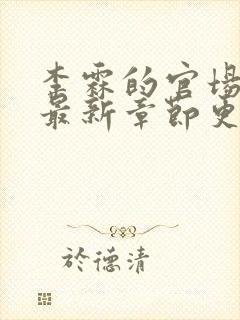 李霖的官场
最新章节更
於德清